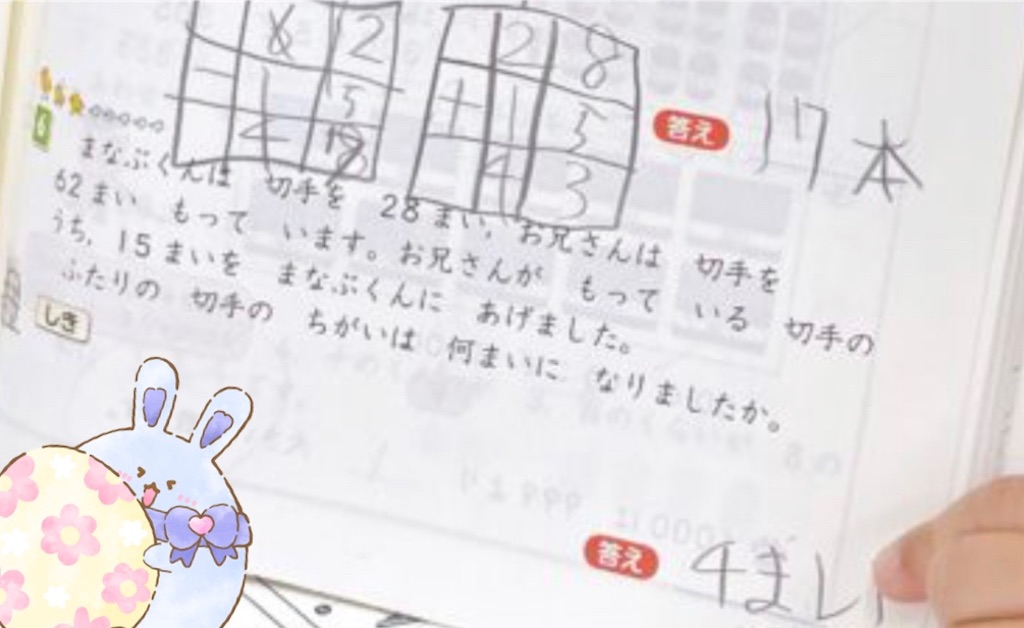 6 2
2 8
- 1 5
+ 1 5
4
4 3
答え 17本
6
まなぶくんは 切手を 28まい、お兄さんは 切手を
62まい もって います。お兄さんが もって いる 切手の
うち、15まいを まなぶくんに あげました。
ふたりの 切手の ちがいは 何まいに なりましたか。
しき
答え 4まい